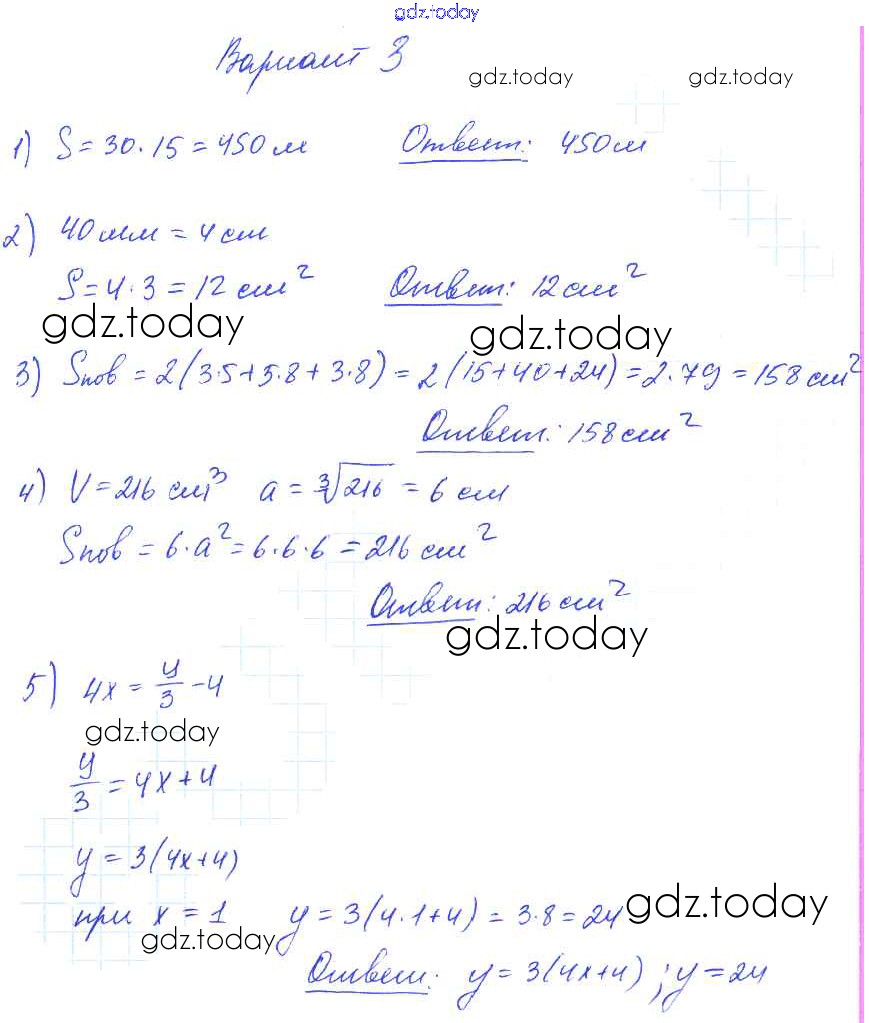 gdz.today
Вариант 3
gdz.today gdz.today
1) S = 30 · 15 = 450 м Ответ: 450 м
2) 40 мм = 4 см
S = 4 · 3 = 12 см² Ответ: 12 см²
gdz.today gdz.today
3) Sпов = 2(3·5+5·8+3·8) = 2(15+40+24) = 2·79 = 158 см²
Ответ: 158 см²
4) V = 216 см³ a = ∛216 = 6 см
Sпов = 6·a² = 6·6·6 = 216 см²
Ответ: 216 см²
gdz.today
5) 4x = y/3 - 4
gdz.today
y/3 = 4x + 4
y = 3(4x+4)
при x = 1 y = 3(4·1+4) = 3·8 = 24 gdz.today
gdz.today
Ответ: y = 3(4x+4); y = 24